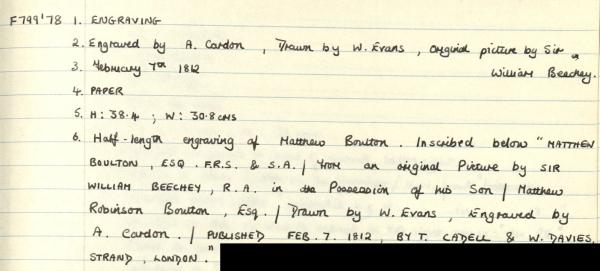 F799'78 1. ENGRAVING
2. Engraved by A. Cardon, Drawn by W. Evans, Original picture by Sir
William Beechey.
3. February 7th 1812
4. PAPER
5. H: 38.4 ; W: 30.8 cms
6. Half-length engraving of Matthew Boulton. Inscribed below "MATTHEW
BOULTON, ESQ. F.R.S. & S.A. / From an original Picture by SIR
WILLIAM BEECHEY, R.A. in the Possession of his Son / Matthew
Robinson Boulton, Esq. / Drawn by W. Evans, Engraved by
A. Cardon. / PUBLISHED FEB. 7. 1812, BY T. CADELL & W. DAVIES,
STRAND, LONDON."